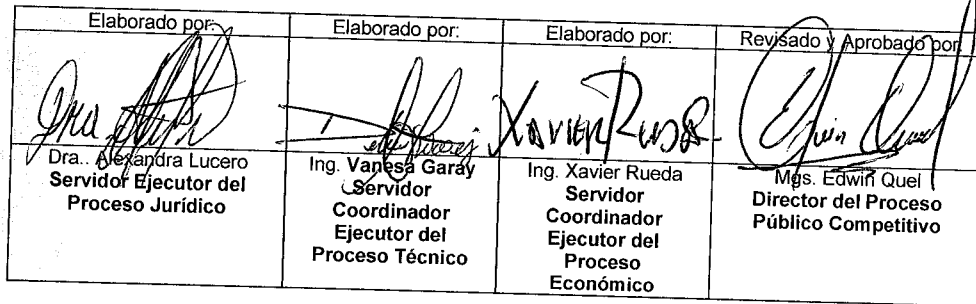 Elaborado por:
Elaborado por:
Elaborado por:
Revisado y Aprobado por:
Xavier Rueda
Edwin Quel
Dra.. Alexandra Lucero
Servidor Ejecutor del
Proceso Jurídico
Ing. Vanesa Garay
Servidor
Coordinador
Ejecutor del
Proceso Técnico
Ing. Xavier Rueda
Servidor
Coordinador
Ejecutor del
Proceso
Económico
Mgs. Edwin Quel
Director del Proceso
Público Competitivo